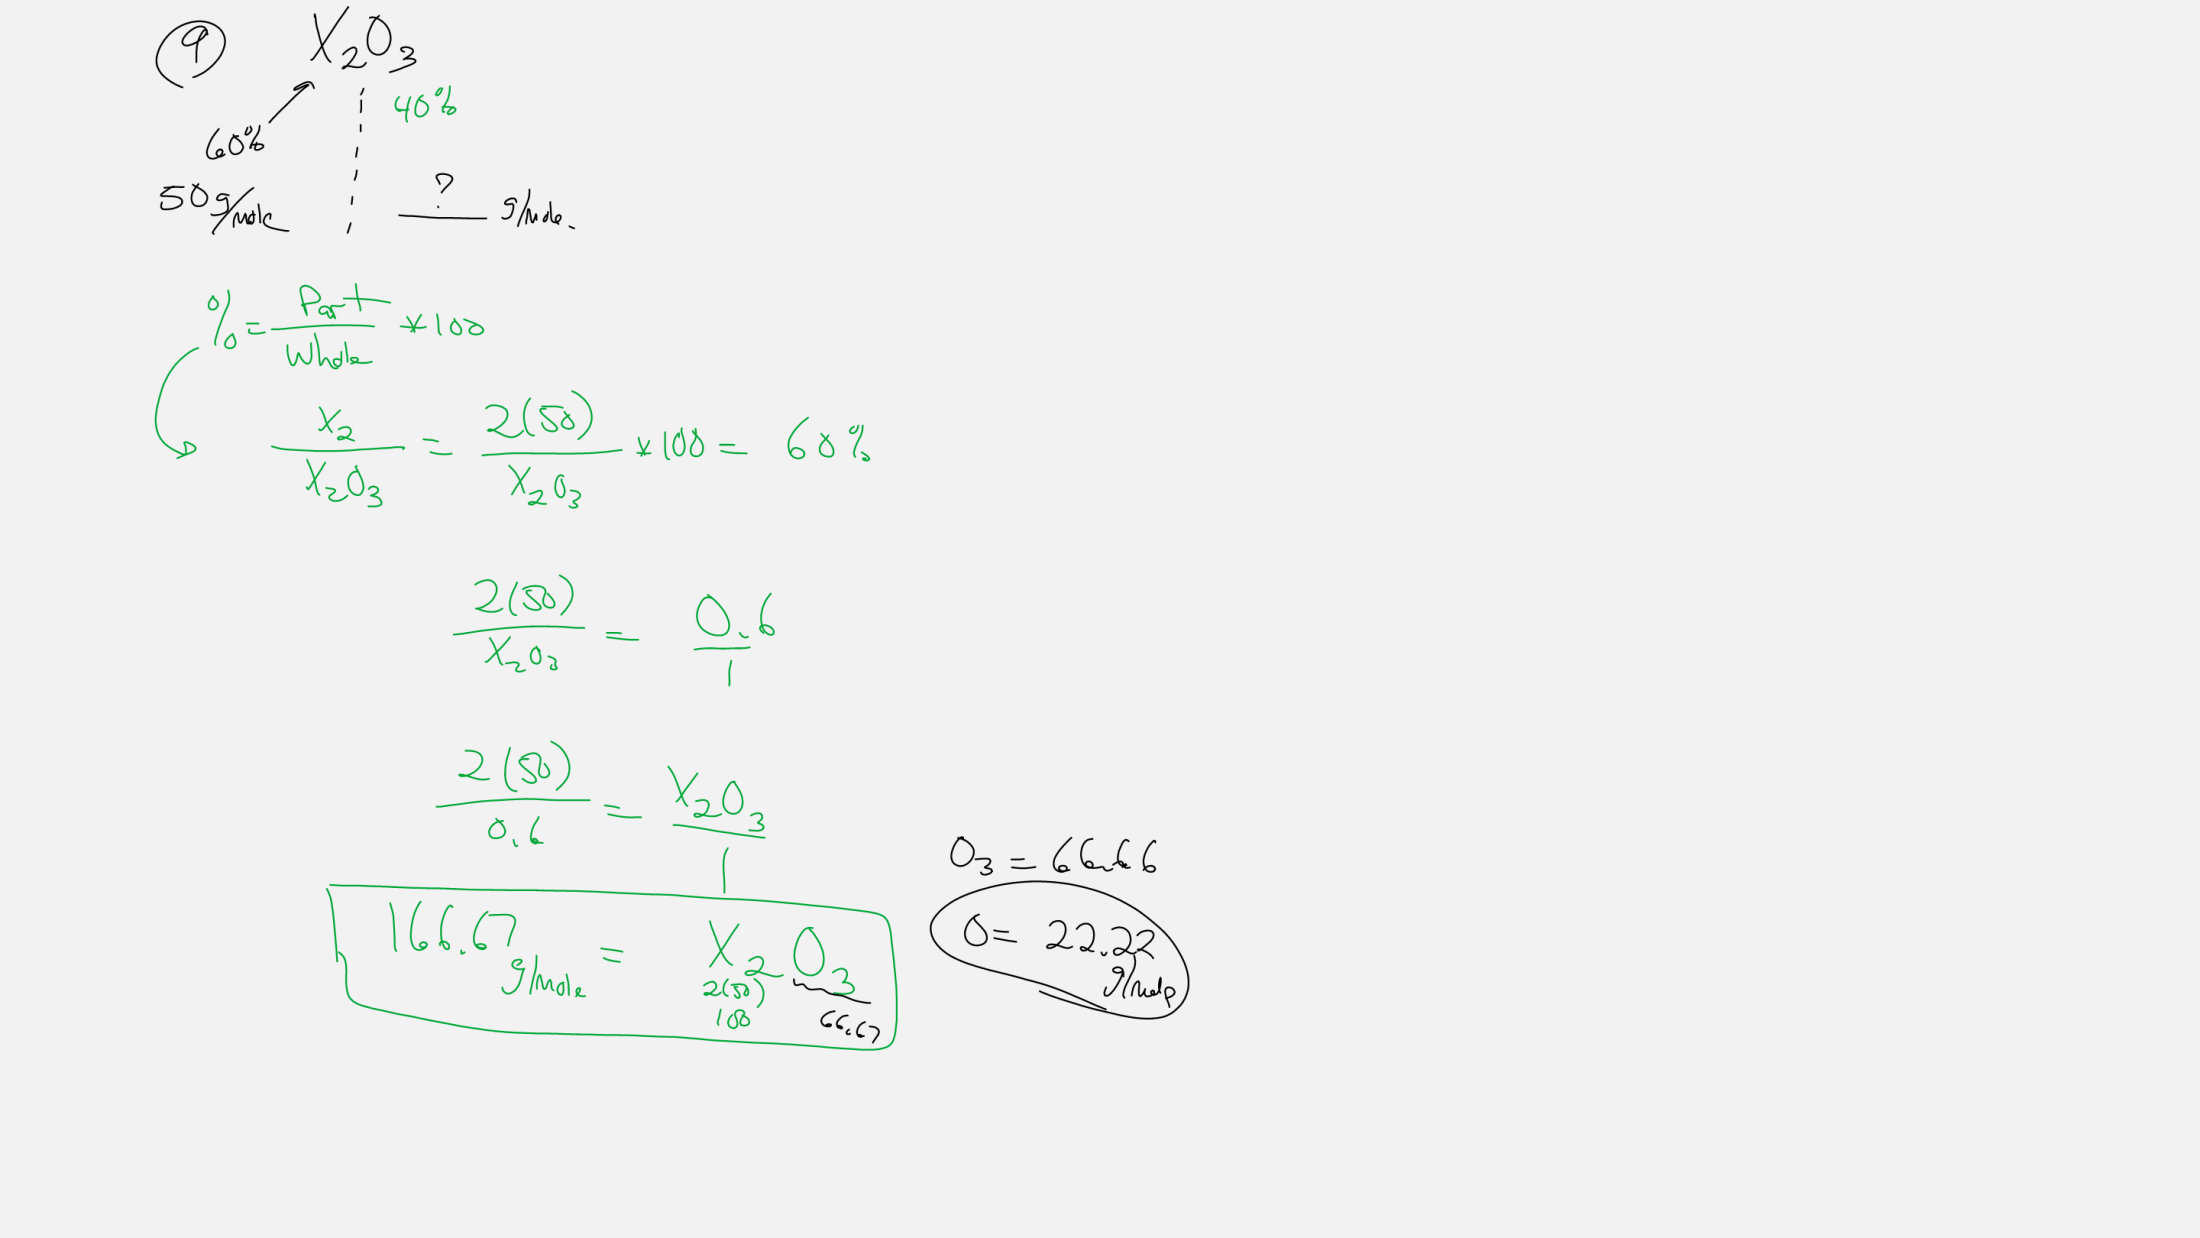 9 X₂O₃
40%
60%
50 g/mole ? g/mole.
% = Part / Whole * 100
X₂ / X₂O₃ = 2(50) / X₂O₃ * 100 = 60%
2(50) / X₂O₃ = 0.6 / 1
2(50) / 0.6 = X₂O₃ / 1
166.67 g/mole = X₂O₃
2(50)
100
66.67
O₃ = 66.66
O = 22.22 g/mole